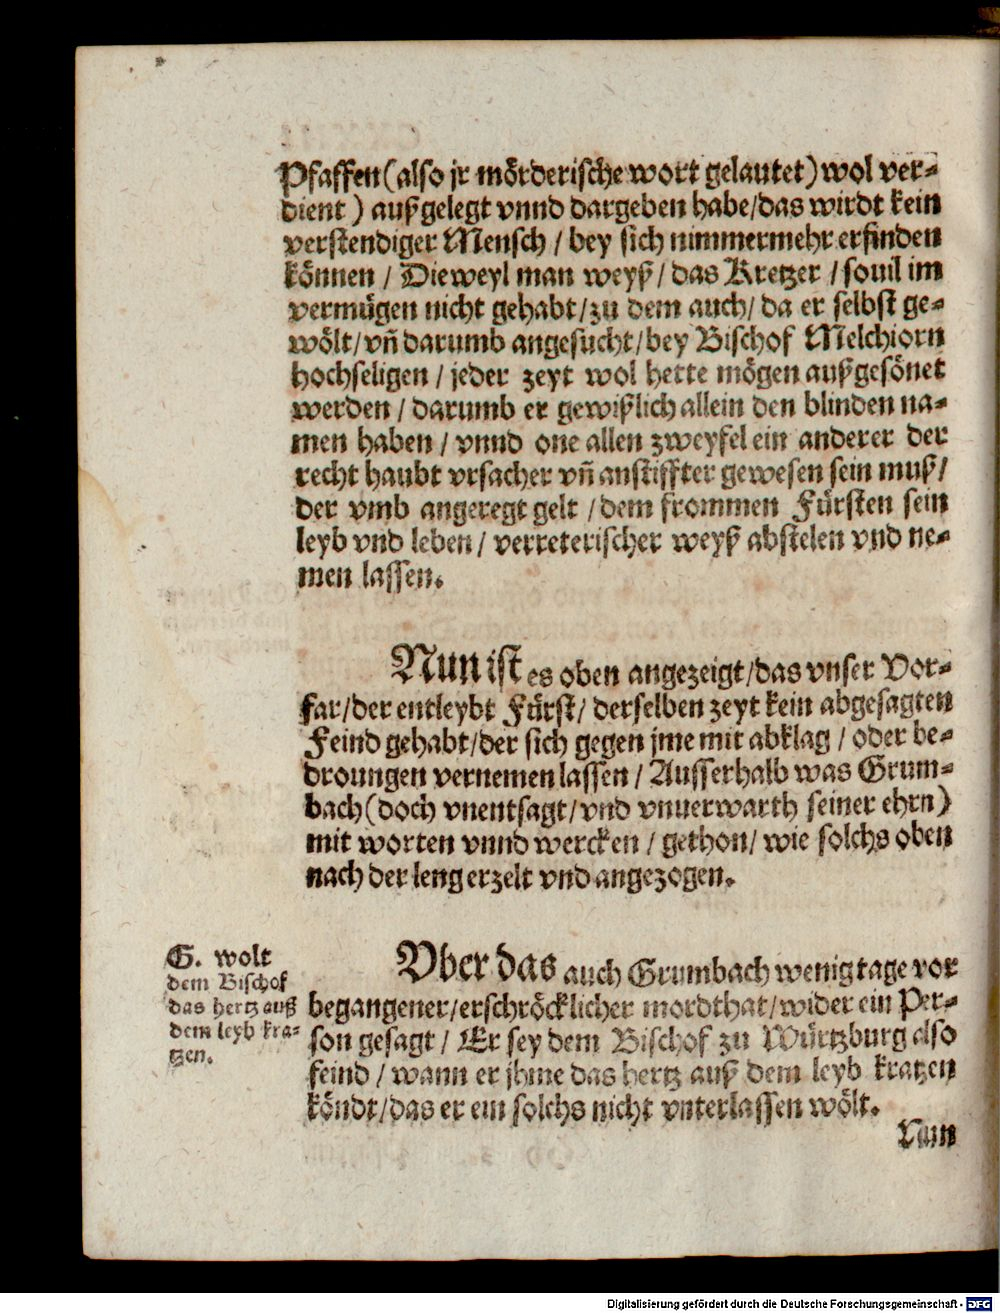 Pfaffen (also jr mörderische wort gelautet) wol ver-
dient) außgelegt vnnd dargeben habe/das wirdt kein
verstendiger Mensch / bey sich nimmermehr erfinden
können / Dieweyl man weyß / das Kretzer / souil im
vermügen nicht gehabt/zu dem auch/ da er selbst ge-
wölt/vñ darumb angesucht/bey Bischof Melchiorn
hochseligen / jeder zeyt wol hette mögen außgesönet
werden / darumb er gewißlich allein den blinden na-
men haben / vnnd one allen zweyfel ein anderer der
recht haubt vrsacher vñ anstiffter gewesen sein muß/
der vmb angeregt gelt / dem frommen Fürsten sein
leyb vnd leben / verreterischer weyß abstelen vnd ne-
men lassen.
Nun ist es oben angezeigt/das vnser Vor-
far/der entleybt Fürst/ derselben zeyt kein abgesagten
Feind gehabt/der sich gegen jme mit abklag / oder be-
droungen vernemen lassen / Ausserhalb was Grum-
bach (doch vnentsagt/vnd vnuerwarth seiner ehrn)
mit worten vnnd wercken / gethon/ wie solchs oben
nach der leng erzelt vnd angezogen.
G. wolt
dem Bischof
das hertz auß
dem leyb kra-
tzen.
Vber das auch Grumbach wenig tage vor
begangener/erschröcklicher mordthat/wider ein Per-
son gesagt / Er sey dem Bischof zu Würtzburg also
feind / wann er jhme das hertz auß dem leyb kratzen
köndt/das er ein solchs nicht vnterlassen wölt.
Nun
Digitalisierung gefördert durch die Deutsche Forschungsgemeinschaft - DFG